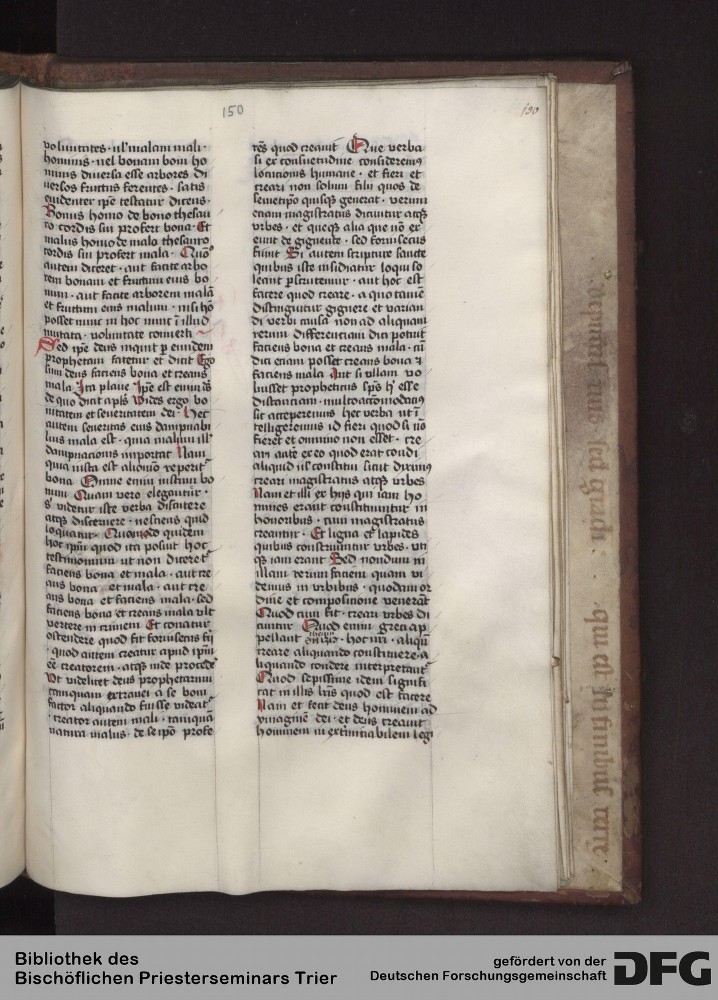 150
190
voluntates · ul' malam mali ·
hominis · uel bonam boni ho
minis diuersa esse arbores di
uersos fructus ferentes · satis
euidenter ipse testatur dicens ·
Bonus homo de bono thesau
ro cordis sui profert bona · Et
malus homo de malo thesauro
cordis sui profert mala · Quomo
autem diceret · aut facite arbo
rem bonam et fructum eius bo
num · aut facite arborem malā
et fructum eius malum · nisi hō
posset nunc in hoc nunc ī illud
mutata · voluntate conuerti
Sed ipse deus inquit p eundem
prophetam fatetur et dicit Ego
sum deus faciens bona et creans
mala · Ita plane Ipse est enim ds
de quo dicit apls Vides ergo bo
nitatem et seueritatem dei · Hec
autem seueritas eius dampnabi
libus mala est · quia malum ill'
dampnacionis importat Nam
quia iusta est alicuio reperit
bona Omne enim iustum bo
num Quam vero eleganter ·
s' videtur iste verba discutere
atqз discernere · nesciens quid
loquatur · Quomodo quidem
hoc ipm quod ita posuit hoc
testimonium ut non diceret
faciens bona et mala · aut cre
ans bona et mala · aut cre
ans bona et faciens mala · sed
faciens bona et creans mala vlt
vertere in crimen Et conatur
ostendere quod fit forinsecus fi
· quod autem creatur apud ipm
eē creatorem · atqз inde procede
Vt videlicet deus prophetarum
tamquam extranei a se boni
factor aliquando fuisse videat
· creator autem mali · tamquā
natura malus · de se ipo profe
rēs quod creauit Que verba
si ex consuetudine consideremus
locucionis humane · et fieri et
creari non solum filii quos de
semetipo quisqз generat · verum
eciam magistratus dicuntur atqз
vrbes · et queqз alia que nō ex
eunt de gignente · sed forinsecus
fiunt Si autem scripture sancte
quibus iste insidiatur loqui so
leant pscrutemur · aut hoc est
facere quod creare · a quo tamē
distinguitur gignere et varian
di verbi causa non ad aliquam
rerum differenciam dici potuit
faciens bona et creans mala · cū
dici eciam posset creans bona ⁊
faciens mala Aut si vllam vo
luisset propheticus sps h' esse
distanciam · multo accomodacius
sic acceperimus hec verba ut ī
telligeremus id fieri quod si nō
fieret et omnino non esset · cre
ari autē ex eo quod erat condi
aliquid ul' constitui sicut diximus
creari magistratus atqз vrbes
Nam et illi ex hijs qui iam ho
mines erant constituuntur in
honoribus · cum magistratus
creantur · Et ligna et lapides
quibus construuntur vrbes · vti
qз iam erant Sed nondum in
illam rerum faciem quam vi
demus in vrbibus · quodam or
dine et composicione venerāt
Quod cum fit · creari vrbes di
cuntur Quod enim greci ap
pellant · hoc nri · aliqñ
creare aliquando constituere · a
liquando condere interpretant
Quod sepissime idem signifi
cat in illis lris quod est facere
Nam et fecit deus hominem ad
ymaginē dei · et deus creauit
hominem in exterminabilem legi
sed gradi ·
qui a finibus terre
Bibliothek des
Bischöflichen Priesterseminars Trier
gefördert von der
Deutschen Forschungsgemeinschaft
DFG